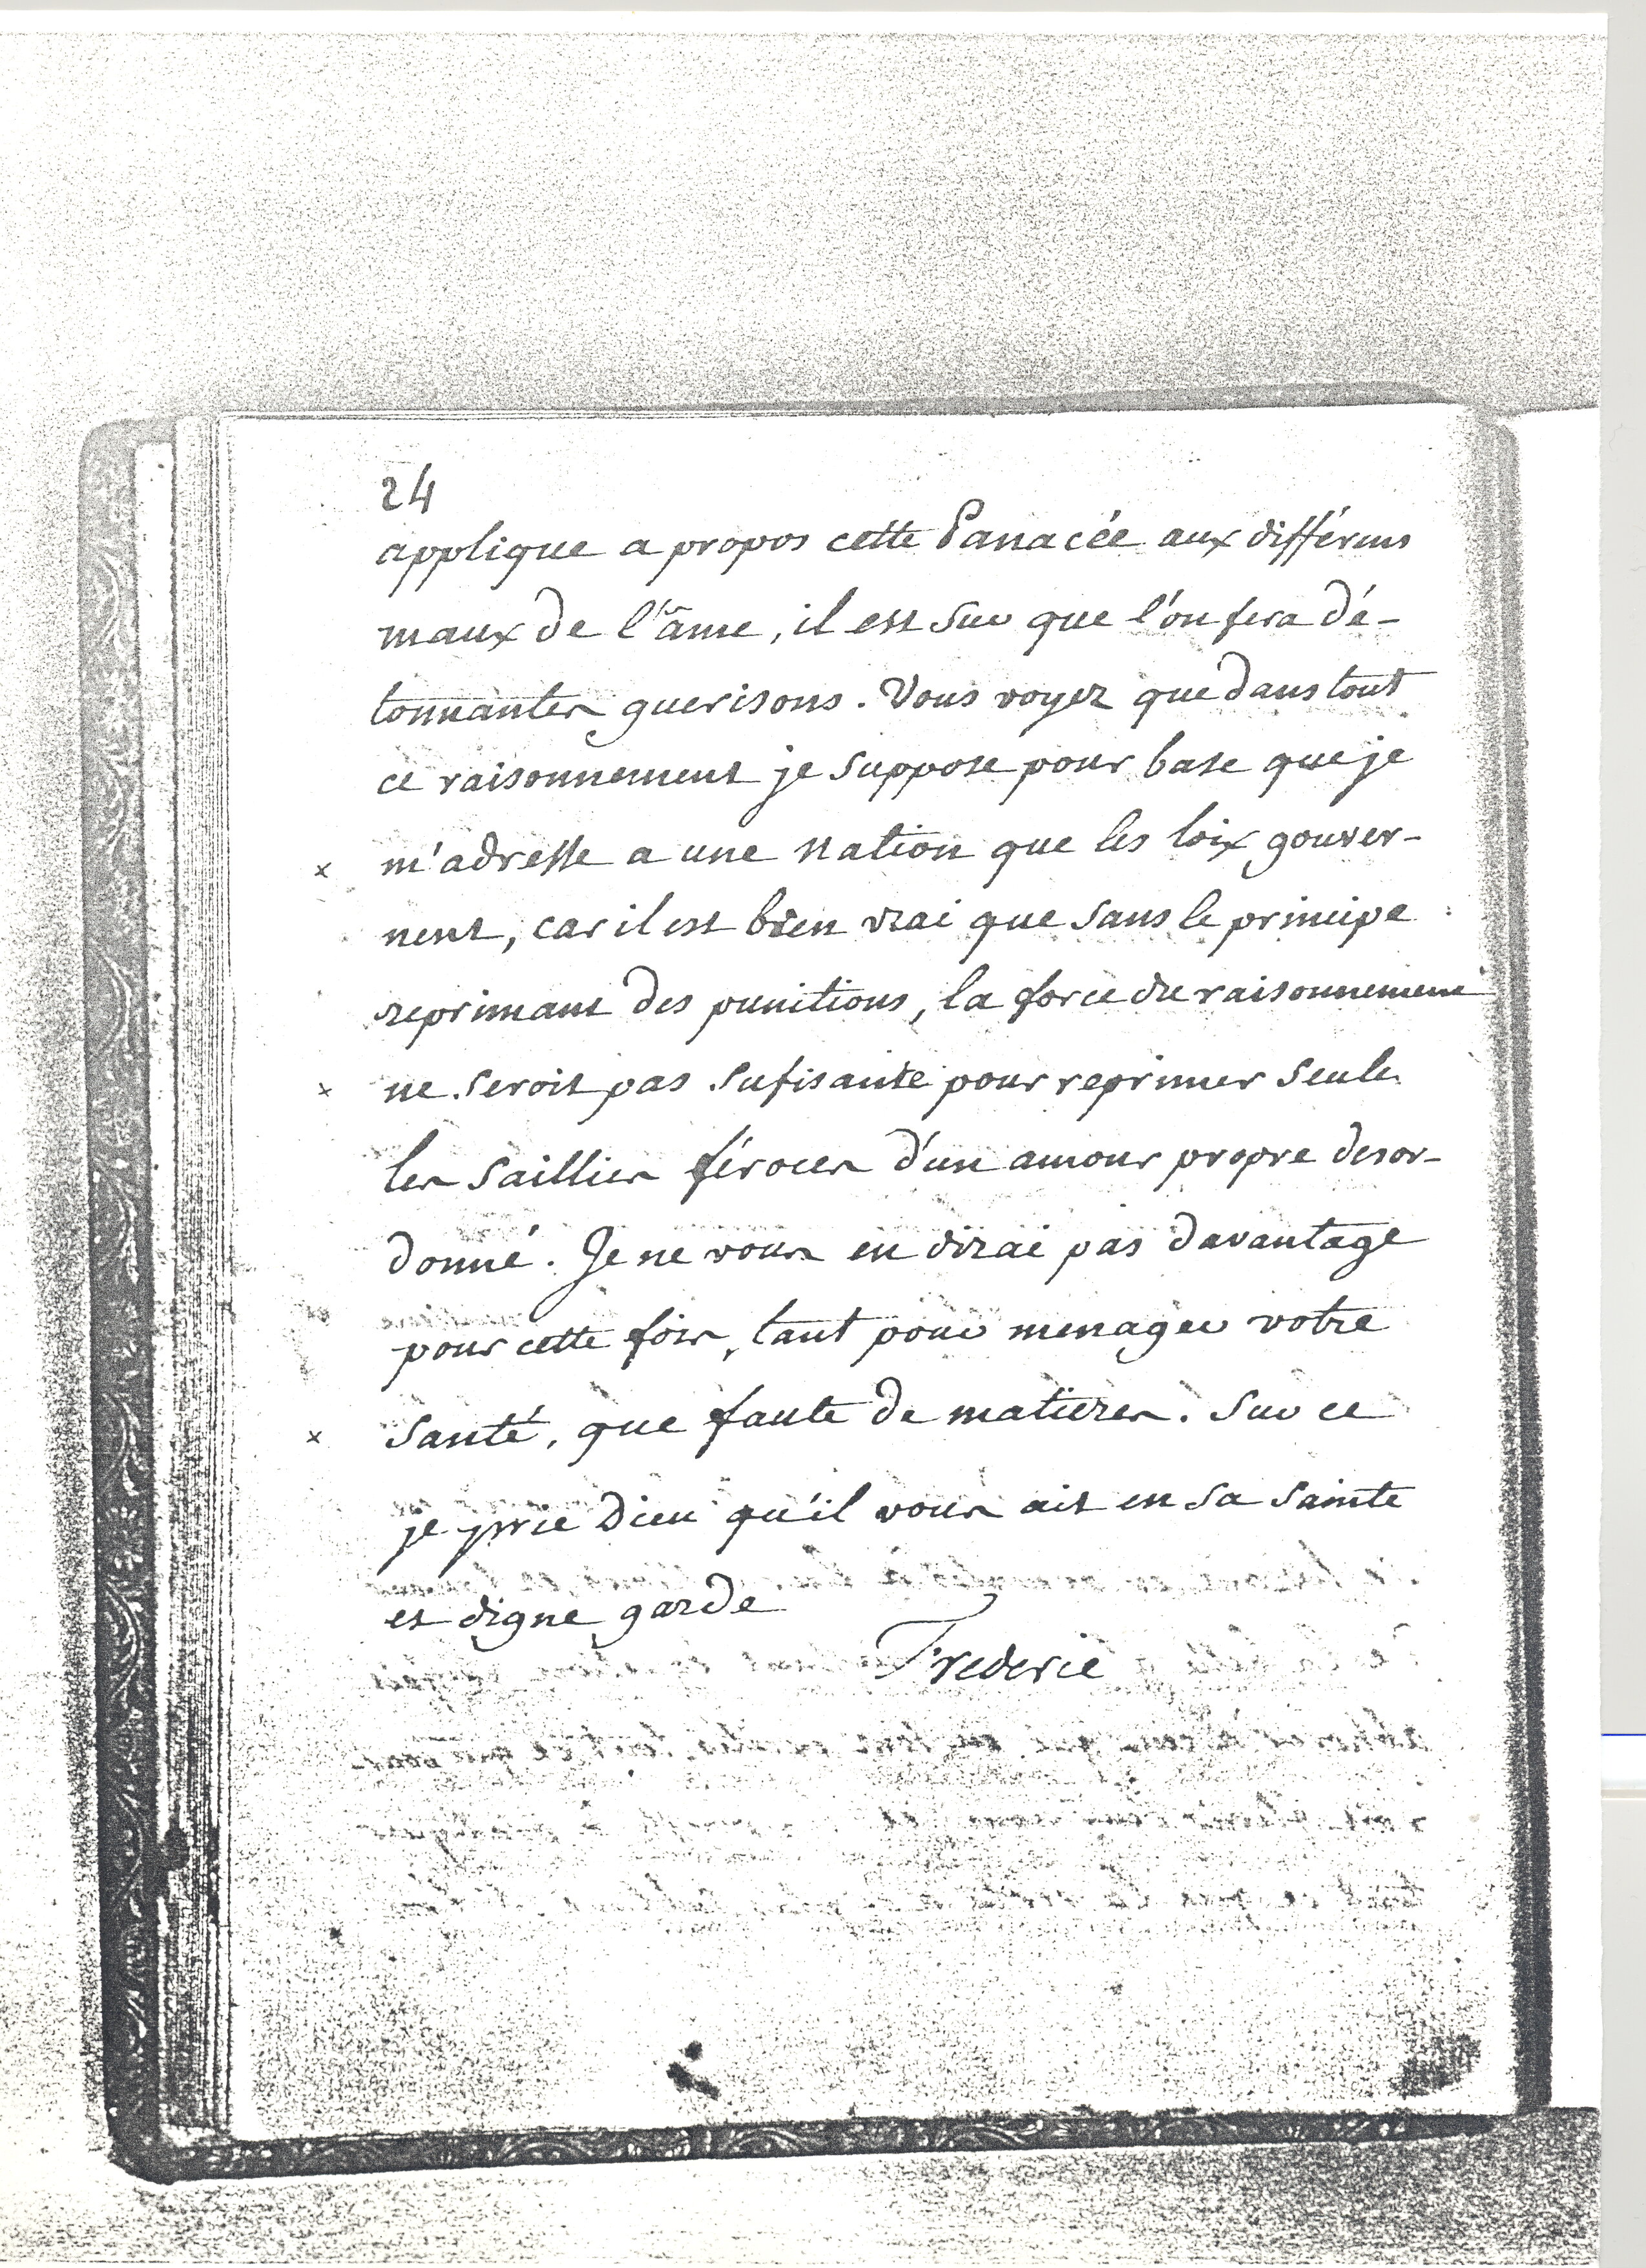 24
applique a propos cette Panacée aux différens
maux de l'âme, il est sur que l'on fera dé-
tonnantes guerisons. Vous voyez que dans tout
ce raisonnement je suppose pour base que je
x m'adresse a une nation que les loix gouver-
nent, car il est bien vrai que sans le principe
reprimant des punitions, la force du raisonnement
x ne seroit pas sufisante pour reprimer seule
les saillies féroces d'un amour propre desor-
donné. Je ne vous en dirai pas davantage
pour cette fois, tant pour menager votre
x santé, que faute de matieres. Sur ce
je prie Dieu qu'il vous ait en sa sainte
et digne garde
Frederic